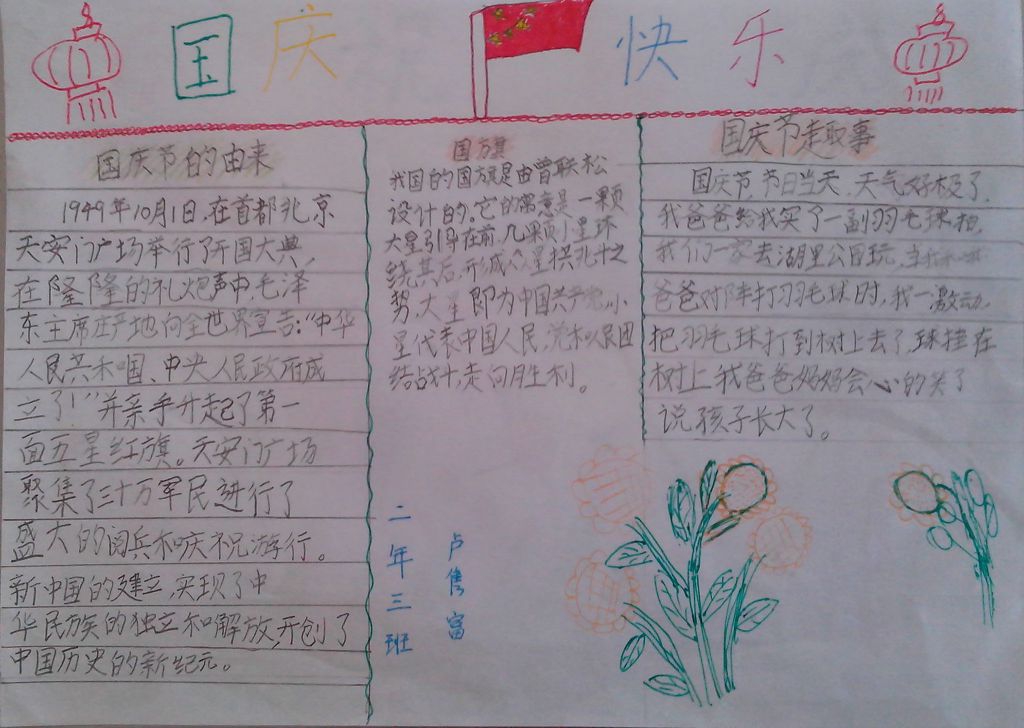 国庆 快乐
国庆节的由来
1949年10月1日,在首都北京
天安门广场举行了开国大典,
在隆隆的礼炮声中,毛泽
东主席庄严地向全世界宣告:“中华
人民共和国、中央人民政府成
立了!”并亲手升起了第一
面五星红旗。天安门广场
聚集了三十万军民进行了
盛大的阅兵和庆祝游行。
新中国的建立,实现了中
华民族的独立和解放,开创了
中国历史的新纪元。
国旗
我国的国旗是由曾联松
设计的。它的寓意是一颗
大星引导在前,几颗小星环
绕其后,形成众星拱北斗之
势,大星即为中国共产党,小
星代表中国人民,党和人民团
结战斗,走向胜利。
二年三班
卢隽富
国庆节趣事
国庆节,节日当天,天气好极了,
我爸爸给我买了一副羽毛球拍,
我们一家去湖里公园玩,
爸爸对阵打羽毛球时,我一激动,
把羽毛球打到树上去了,球挂在
树上,我爸爸妈妈会心的笑了
说孩子长大了。